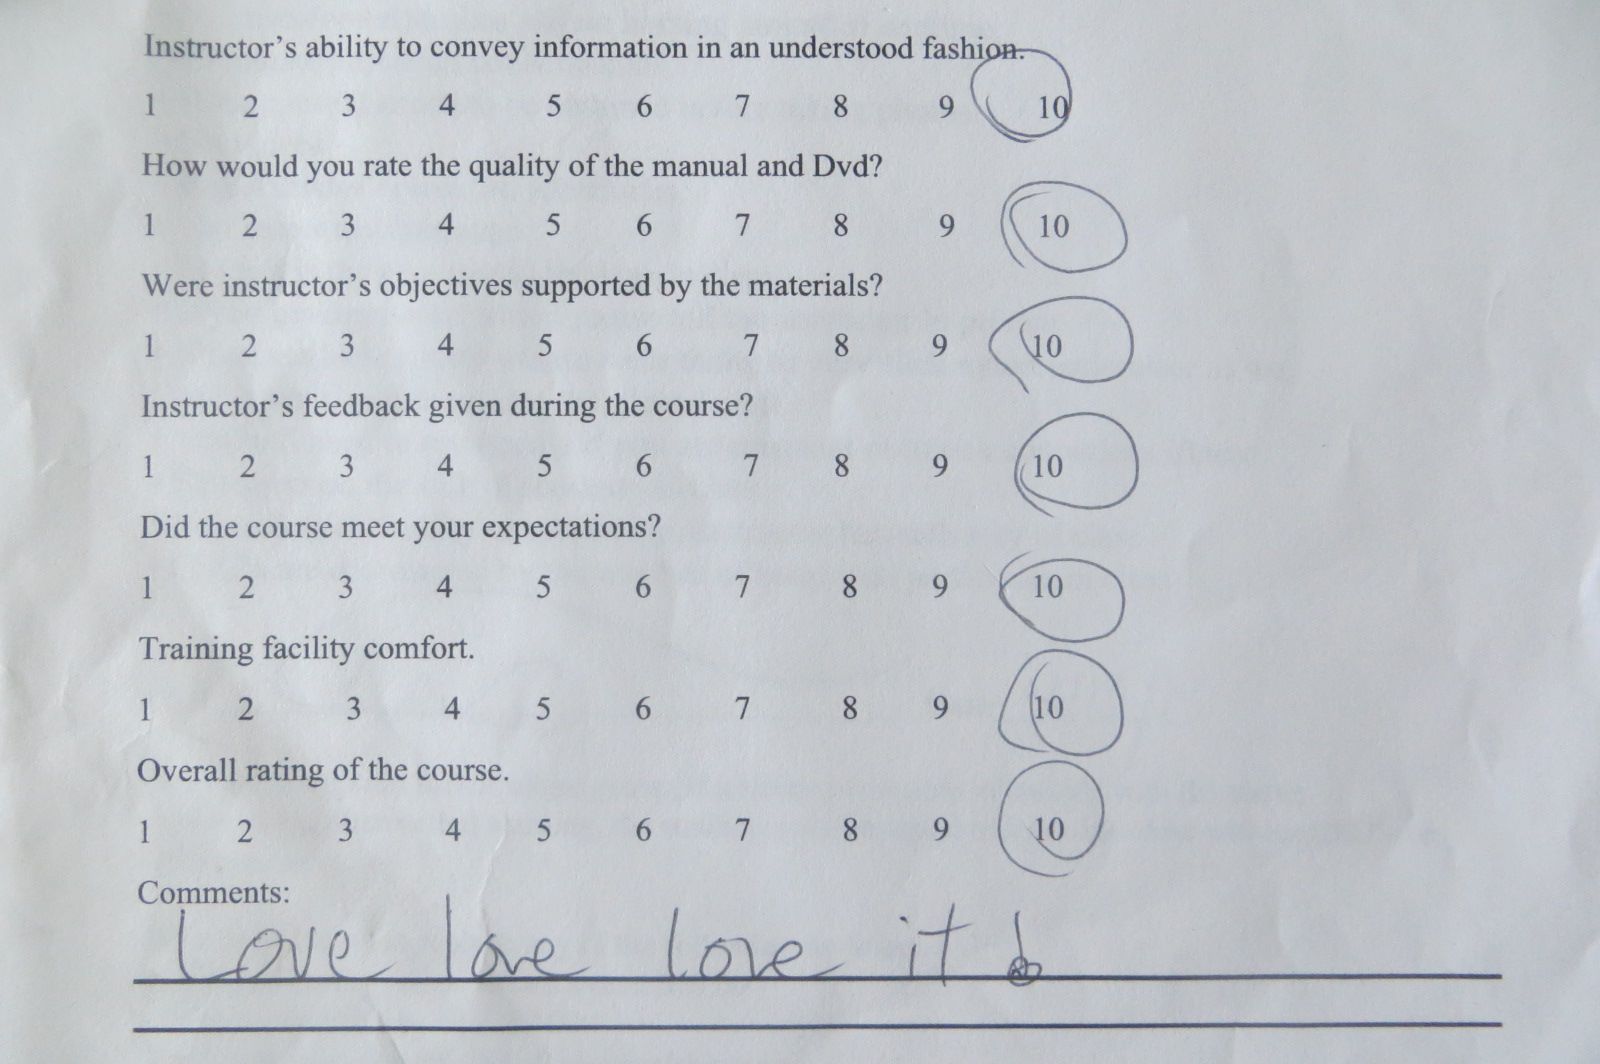 Instructor's ability to convey information in an understood fashion.
1 2 3 4 5 6 7 8 9 10
How would you rate the quality of the manual and Dvd?
1 2 3 4 5 6 7 8 9 10
Were instructor's objectives supported by the materials?
1 2 3 4 5 6 7 8 9 10
Instructor's feedback given during the course?
1 2 3 4 5 6 7 8 9 10
Did the course meet your expectations?
1 2 3 4 5 6 7 8 9 10
Training facility comfort.
1 2 3 4 5 6 7 8 9 10
Overall rating of the course.
1 2 3 4 5 6 7 8 9 10
Comments:
Love love love it!